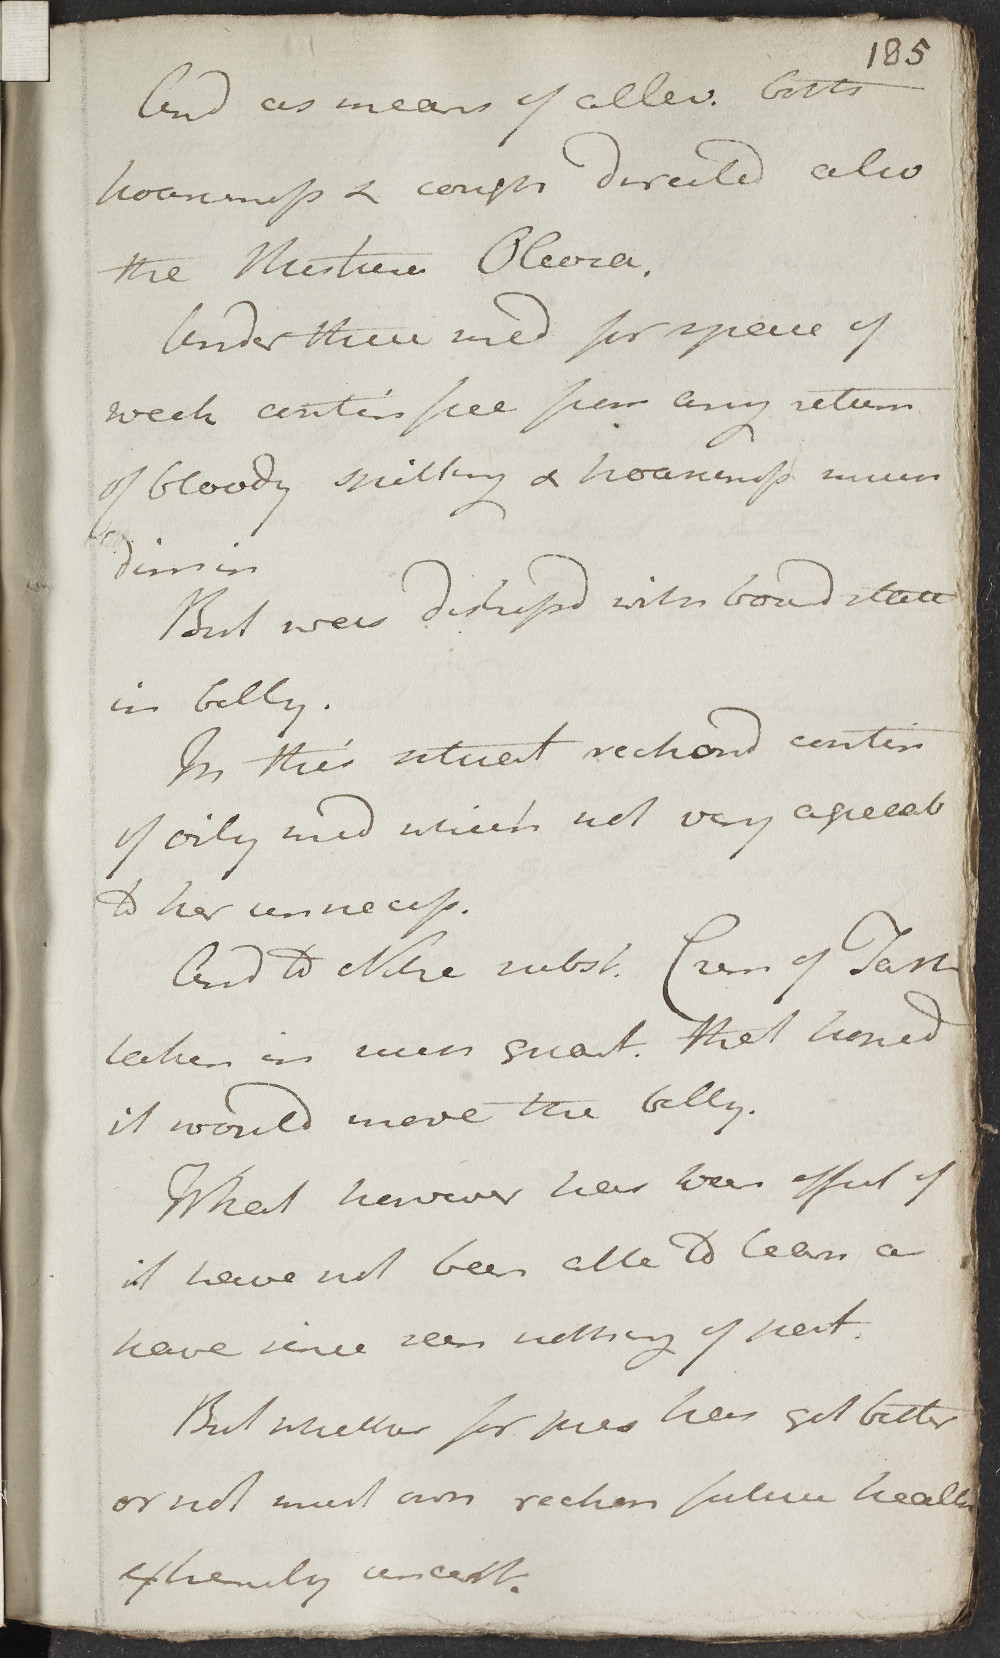 185
And as means of allev. both
hoarseness & cough directed also
the Mixture Oleosa.
Under these med for space of
week contin free from any return
of bloody spitting & hoarseness much
dimin
But was distressd with bound state
in belly.
In this situat reckond contin
of oily med which not very agreeab
to her unnecess.
And to Nitre subst. Crem of Tart
taken in such quant. that hoped
it would move the belly.
What however has been effect of
it have not been able to learn as
have since seen nothing of pat.
But whether for pres has got better
or not must own reckon future health
extremely uncert.